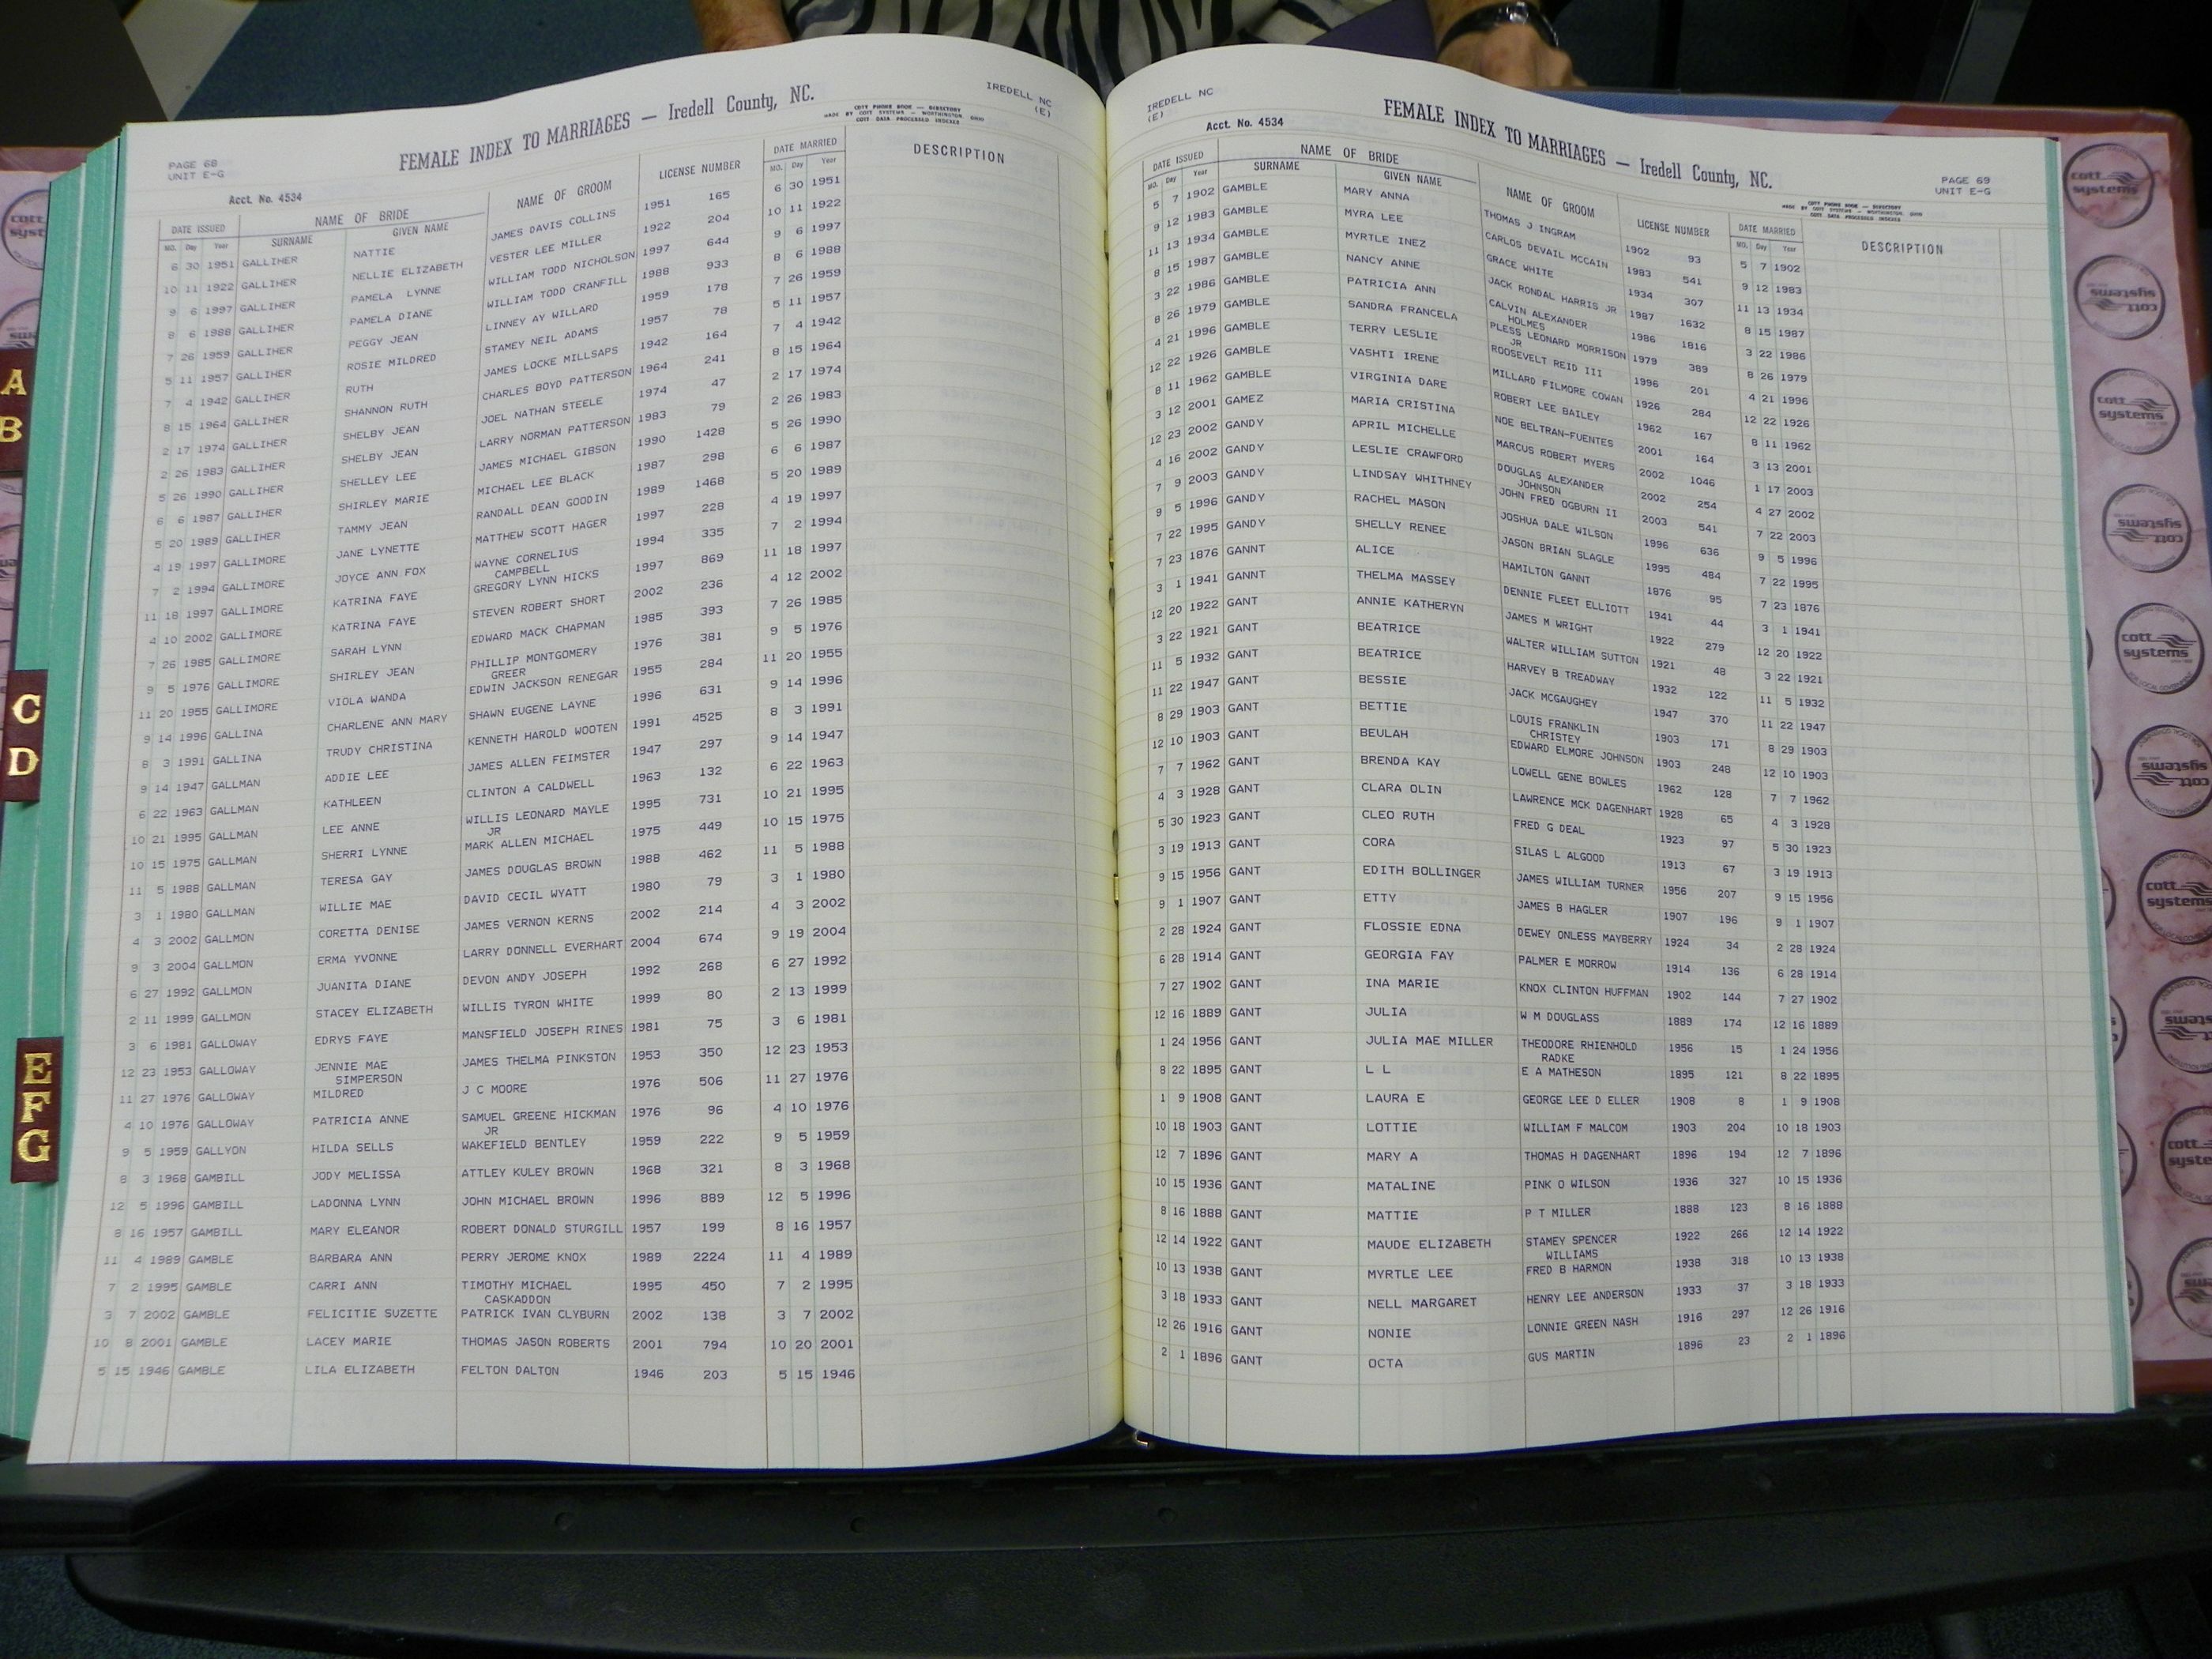 PAGE 68
UNIT E-G
FEMALE INDEX TO MARRIAGES — Iredell County, NC.
COTT PHONE BOOK — DIRECTORY
MADE BY COTT SYSTEMS — WORTHINGTON, OHIO
COTT DATA PROCESSED INDEXES
IREDELL NC
(E)
Acct. No. 4534
DATE ISSUED NAME OF BRIDE NAME OF GROOM LICENSE NUMBER DATE MARRIED DESCRIPTION
MO. Day Year SURNAME GIVEN NAME MO. Day Year
6 30 1951 GALLIHER NATTIE JAMES DAVIS COLLINS 1951 165 6 30 1951
10 11 1922 GALLIHER NELLIE ELIZABETH VESTER LEE MILLER 1922 204 10 11 1922
9 6 1997 GALLIHER PAMELA LYNNE WILLIAM TODD NICHOLSON 1997 644 9 6 1997
8 6 1988 GALLIHER PAMELA DIANE WILLIAM TODD CRANFILL 1988 933 8 6 1988
7 26 1959 GALLIHER PEGGY JEAN LINNEY AY WILLARD 1959 178 7 26 1959
5 11 1957 GALLIHER ROSIE MILDRED STAMEY NEIL ADAMS 1957 78 5 11 1957
7 4 1942 GALLIHER RUTH JAMES LOCKE MILLSAPS 1942 164 7 4 1942
8 15 1964 GALLIHER SHANNON RUTH CHARLES BOYD PATTERSON 1964 241 8 15 1964
2 17 1974 GALLIHER SHELBY JEAN JOEL NATHAN STEELE 1974 47 2 17 1974
2 26 1983 GALLIHER SHELBY JEAN LARRY NORMAN PATTERSON 1983 79 2 26 1983
5 26 1990 GALLIHER SHELLEY LEE JAMES MICHAEL GIBSON 1990 1428 5 26 1990
6 6 1987 GALLIHER SHIRLEY MARIE MICHAEL LEE BLACK 1987 298 6 6 1987
5 20 1989 GALLIHER TAMMY JEAN RANDALL DEAN GOODIN 1989 1468 5 20 1989
4 19 1997 GALLIMORE JANE LYNETTE MATTHEW SCOTT HAGER 1997 228 4 19 1997
7 2 1994 GALLIMORE JOYCE ANN FOX WAYNE CORNELIUS 1994 335 7 2 1994
CAMPBELL
11 18 1997 GALLIMORE KATRINA FAYE GREGORY LYNN HICKS 1997 869 11 18 1997
4 10 2002 GALLIMORE KATRINA FAYE STEVEN ROBERT SHORT 2002 236 4 12 2002
7 26 1985 GALLIMORE SARAH LYNN EDWARD MACK CHAPMAN 1985 393 7 26 1985
9 5 1976 GALLIMORE SHIRLEY JEAN PHILLIP MONTGOMERY 1976 381 9 5 1976
GREER
11 20 1955 GALLIMORE VIOLA WANDA EDWIN JACKSON RENEGAR 1955 284 11 20 1955
9 14 1996 GALLINA CHARLENE ANN MARY SHAWN EUGENE LAYNE 1996 631 9 14 1996
8 3 1991 GALLINA TRUDY CHRISTINA KENNETH HAROLD WOOTEN 1991 4525 8 3 1991
9 14 1947 GALLMAN ADDIE LEE JAMES ALLEN FEIMSTER 1947 297 9 14 1947
6 22 1963 GALLMAN KATHLEEN CLINTON A CALDWELL 1963 132 6 22 1963
10 21 1995 GALLMAN LEE ANNE WILLIS LEONARD MAYLE 1995 731 10 21 1995
JR
10 15 1975 GALLMAN SHERRI LYNNE MARK ALLEN MICHAEL 1975 449 10 15 1975
11 5 1988 GALLMAN TERESA GAY JAMES DOUGLAS BROWN 1988 462 11 5 1988
3 1 1980 GALLMAN WILLIE MAE DAVID CECIL WYATT 1980 79 3 1 1980
4 3 2002 GALLMON CORETTA DENISE JAMES VERNON KERNS 2002 214 4 3 2002
9 3 2004 GALLMON ERMA YVONNE LARRY DONNELL EVERHART 2004 674 9 19 2004
6 27 1992 GALLMON JUANITA DIANE DEVON ANDY JOSEPH 1992 268 6 27 1992
2 11 1999 GALLMON STACEY ELIZABETH WILLIS TYRON WHITE 1999 80 2 13 1999
3 6 1981 GALLOWAY EDRYS FAYE MANSFIELD JOSEPH RINES 1981 75 3 6 1981
12 23 1953 GALLOWAY JENNIE MAE JAMES THELMA PINKSTON 1953 350 12 23 1953
SIMPERSON
11 27 1976 GALLOWAY MILDRED J C MOORE 1976 506 11 27 1976
4 10 1976 GALLOWAY PATRICIA ANNE SAMUEL GREENE HICKMAN 1976 96 4 10 1976
JR
9 5 1959 GALLYON HILDA SELLS WAKEFIELD BENTLEY 1959 222 9 5 1959
8 3 1968 GAMBILL JODY MELISSA ATTLEY KULEY BROWN 1968 321 8 3 1968
12 5 1996 GAMBILL LADONNA LYNN JOHN MICHAEL BROWN 1996 889 12 5 1996
8 16 1957 GAMBILL MARY ELEANOR ROBERT DONALD STURGILL 1957 199 8 16 1957
11 4 1989 GAMBLE BARBARA ANN PERRY JEROME KNOX 1989 2224 11 4 1989
7 2 1995 GAMBLE CARRI ANN TIMOTHY MICHAEL 1995 450 7 2 1995
CASKADDON
3 7 2002 GAMBLE FELICITIE SUZETTE PATRICK IVAN CLYBURN 2002 138 3 7 2002
10 8 2001 GAMBLE LACEY MARIE THOMAS JASON ROBERTS 2001 794 10 20 2001
5 15 1946 GAMBLE LILA ELIZABETH FELTON DALTON 1946 203 5 15 1946
IREDELL NC
(E)
Acct. No. 4534
FEMALE INDEX TO MARRIAGES — Iredell County, NC.
COTT PHONE BOOK — DIRECTORY
MADE BY COTT SYSTEMS — WORTHINGTON, OHIO
COTT DATA PROCESSED INDEXES
PAGE 69
UNIT E-G
DATE ISSUED NAME OF BRIDE NAME OF GROOM LICENSE NUMBER DATE MARRIED DESCRIPTION
MO. Day Year SURNAME GIVEN NAME MO. Day Year
5 7 1902 GAMBLE MARY ANNA THOMAS J INGRAM 1902 93 5 7 1902
9 12 1983 GAMBLE MYRA LEE CARLOS DEVAIL MCCAIN 1983 541 9 12 1983
11 13 1934 GAMBLE MYRTLE INEZ GRACE WHITE 1934 307 11 13 1934
8 15 1987 GAMBLE NANCY ANNE JACK RONDAL HARRIS JR 1987 1632 8 15 1987
3 22 1986 GAMBLE PATRICIA ANN CALVIN ALEXANDER 1986 1816 3 22 1986
HOLMES
8 26 1979 GAMBLE SANDRA FRANCELA PLESS LEONARD MORRISON 1979 389 8 26 1979
JR
4 21 1996 GAMBLE TERRY LESLIE ROOSEVELT REID III 1996 201 4 21 1996
12 22 1926 GAMBLE VASHTI IRENE MILLARD FILMORE COWAN 1926 284 12 22 1926
8 11 1962 GAMBLE VIRGINIA DARE ROBERT LEE BAILEY 1962 167 8 11 1962
3 12 2001 GAMEZ MARIA CRISTINA NOE BELTRAN-FUENTES 2001 164 3 13 2001
12 23 2002 GANDY APRIL MICHELLE MARCUS ROBERT MYERS 2002 1046 1 17 2003
4 16 2002 GANDY LESLIE CRAWFORD DOUGLAS ALEXANDER 2002 254 4 27 2002
JOHNSON
7 9 2003 GANDY LINDSAY WHITHNEY JOHN FRED OGBURN II 2003 541 7 22 2003
9 5 1996 GANDY RACHEL MASON JOSHUA DALE WILSON 1996 636 9 5 1996
7 22 1995 GANDY SHELLY RENEE JASON BRIAN SLAGLE 1995 484 7 22 1995
7 23 1876 GANNT ALICE HAMILTON GANNT 1876 95 7 23 1876
3 1 1941 GANNT THELMA MASSEY DENNIE FLEET ELLIOTT 1941 44 3 1 1941
12 20 1922 GANT ANNIE KATHERYN JAMES M WRIGHT 1922 279 12 20 1922
3 22 1921 GANT BEATRICE WALTER WILLIAM SUTTON 1921 48 3 22 1921
11 5 1932 GANT BEATRICE HARVEY B TREADWAY 1932 122 11 5 1932
11 22 1947 GANT BESSIE JACK MCGAUGHEY 1947 370 11 22 1947
8 29 1903 GANT BETTIE LOUIS FRANKLIN 1903 171 8 29 1903
CHRISTEY
12 10 1903 GANT BEULAH EDWARD ELMORE JOHNSON 1903 248 12 10 1903
7 7 1962 GANT BRENDA KAY LOWELL GENE BOWLES 1962 128 7 7 1962
4 3 1928 GANT CLARA OLIN LAWRENCE MCK DAGENHART 1928 65 4 3 1928
5 30 1923 GANT CLEO RUTH FRED G DEAL 1923 97 5 30 1923
3 19 1913 GANT CORA SILAS L ALGOOD 1913 67 3 19 1913
9 15 1956 GANT EDITH BOLLINGER JAMES WILLIAM TURNER 1956 207 9 15 1956
9 1 1907 GANT ETTY JAMES B HAGLER 1907 196 9 1 1907
2 28 1924 GANT FLOSSIE EDNA DEWEY ONLESS MAYBERRY 1924 34 2 28 1924
6 28 1914 GANT GEORGIA FAY PALMER E MORROW 1914 136 6 28 1914
7 27 1902 GANT INA MARIE KNOX CLINTON HUFFMAN 1902 144 7 27 1902
12 16 1889 GANT JULIA W M DOUGLASS 1889 174 12 16 1889
1 24 1956 GANT JULIA MAE MILLER THEODORE RHIENHOLD 1956 15 1 24 1956
RADKE
8 22 1895 GANT L L E A MATHESON 1895 121 8 22 1895
1 9 1908 GANT LAURA E GEORGE LEE D ELLER 1908 8 1 9 1908
10 18 1903 GANT LOTTIE WILLIAM F MALCOM 1903 204 10 18 1903
12 7 1896 GANT MARY A THOMAS H DAGENHART 1896 194 12 7 1896
10 15 1936 GANT MATALINE PINK O WILSON 1936 327 10 15 1936
8 16 1888 GANT MATTIE P T MILLER 1888 123 8 16 1888
12 14 1922 GANT MAUDE ELIZABETH STAMEY SPENCER 1922 266 12 14 1922
WILLIAMS
10 13 1938 GANT MYRTLE LEE FRED B HARMON 1938 318 10 13 1938
3 18 1933 GANT NELL MARGARET HENRY LEE ANDERSON 1933 37 3 18 1933
12 26 1916 GANT NONIE LONNIE GREEN NASH 1916 297 12 26 1916
2 1 1896 GANT OCTA GUS MARTIN 1896 23 2 1 1896
A
B
C
D
E
F
G
cott
systems
cott
systems
cott
systems
cott
systems
cott
systems
cott
systems
cott
systems